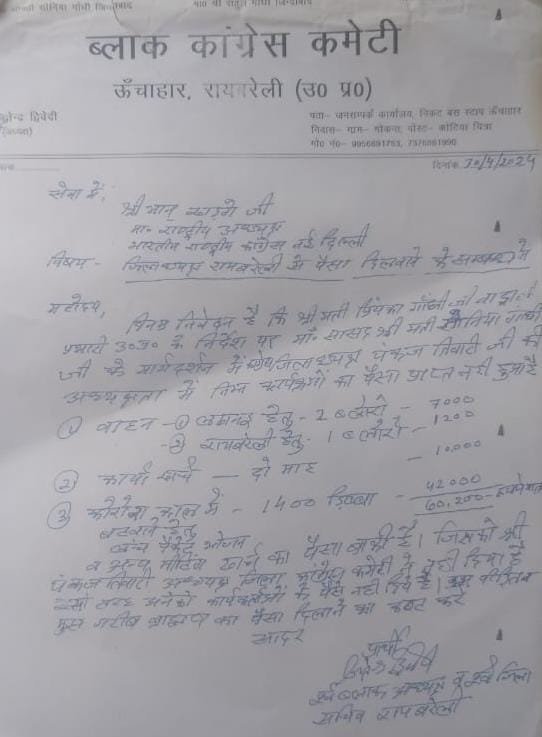 सोनिया गांधी जिन्दाबाद मा० श्री राहुल गांधी जिन्दाबाद
ब्लाक कांग्रेस कमेटी
ऊँचाहार, रायबरेली (उ० प्र०)
द्विवेदी
(अध्यक्ष)
पता- जनसम्पर्क कार्यालय, निकट बस स्टाप ऊँचाहार
निवास- ग्राम- गोकना, पोस्ट- कोटिया चित्रा
मो० नं०-
दिनांक 30/4/2024
सेवा में,
श्री मान् खड़गे जी
मा० राष्ट्रीय अध्यक्ष
भारतीय राष्ट्रीय कांग्रेस नई दिल्ली
विषय - जिलाध्यक्ष रायबरेली से पैसा दिलवाने के सम्बन्ध में
महोदय,
विनम्र निवेदन है कि श्री मती प्रियंका गाँधी जी
प्रभारी उ०प्र० के निर्देश पर मा० सांसद श्री मती सोनिया गांधी
जी के मार्गदर्शन में जिलाध्यक्ष पंकज तिवारी जी की
अध्यक्षता में निम्न कार्यक्रमों का पैसा प्राप्त नही हुआ है
① वाहन - ① लखनऊ हेतु - 2 बोलेरो - 7000
② रायबरेली हेतु - 1 बोलेरो - 1200
② कार्या खर्च — दो माह - 10,000
③ कोरोना काल में - 1400 डिब्बा - 42000
बटवाने हेतु 60,200 - रूपये मात्र
लंच पैकेट भोजन
व अन्य मीटिंग खर्च का पैसा बाकी है। जिसको श्री
पंकज तिवारी अध्यक्ष जिला कांग्रेस कमेटी ने नही दिया है
इसी तरह अनेको कार्यकर्ताओं के पैसे नही दिये है।
मुझ गरीब ब्राह्मण का पैसा दिलाने का कष्ट करें
सादर
प्रार्थी
पूर्व ब्लाक अध्यक्ष व पूर्व जिला
सचिव रायबरेली